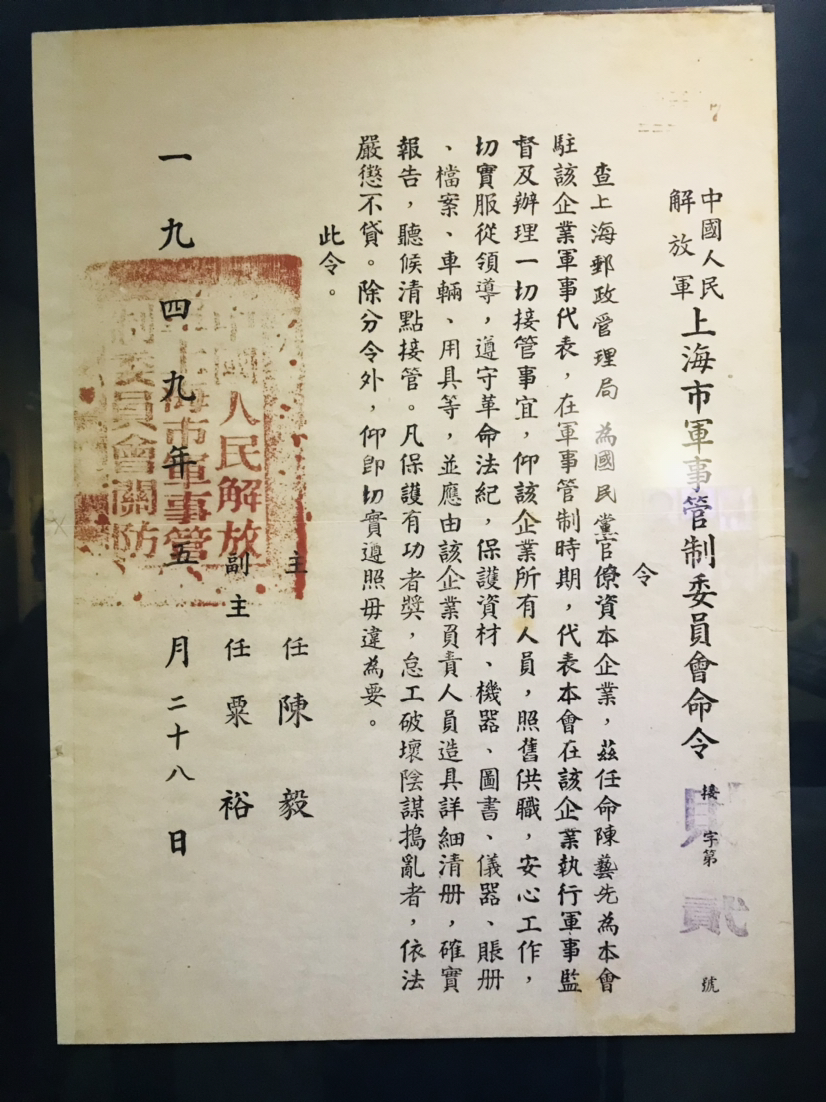 中國人民
解放軍
上海市軍事管制委員會命令
接字第
貳
號
令
查上海郵政管理局為國民黨官僚資本企業，茲任命陳藝先為本會
駐該企業軍事代表，在軍事管制時期，代表本會在該企業執行軍事監
督及辦理一切接管事宜，仰該企業所有人員，照舊供職，安心工作，
切實服從領導，遵守革命法紀，保護資材、機器、圖書、儀器、賬册
、檔案、車輛、用具等，並應由該企業負責人員造具詳細清册，確實
報告，聽候清點接管。凡保護有功者獎，怠工破壞陰謀搗亂者，依法
嚴懲不貸。除分令外，仰即切實遵照毋違為要。
此令。
主任陳毅
副主任粟裕
一九四九年五月二十八日
中國人民解放
軍上海市軍事管
制委員會關防